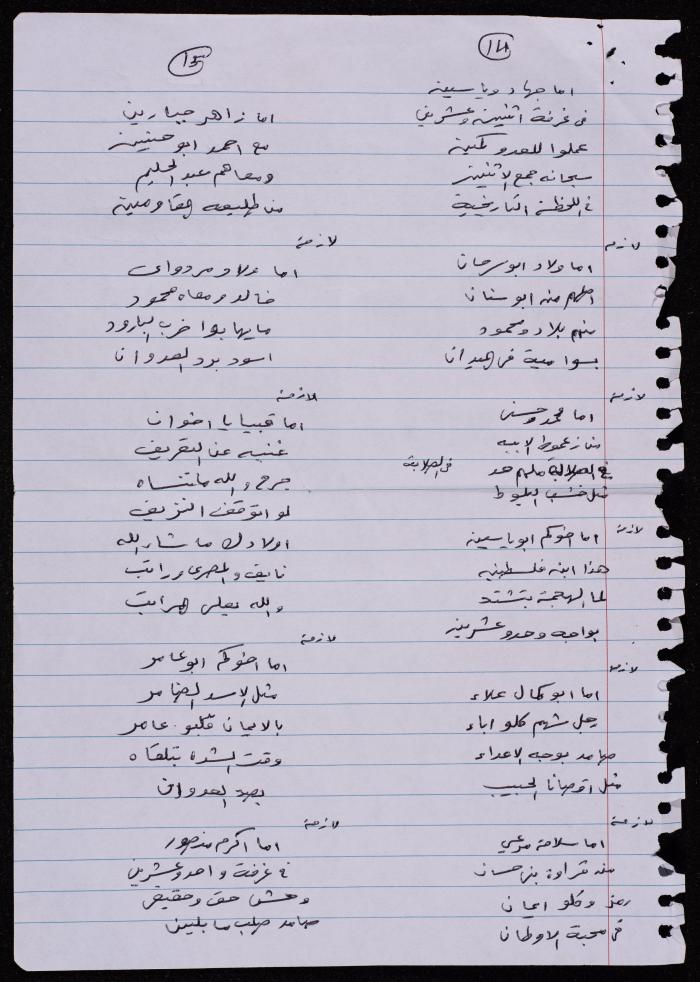 ١٤
اما جهاد وياسين
في غرفة اثنين وعشرين
عملوا للعدو كمين
سبحانه جمع الاثنين
في اللحظة التاريخية
لازمة
اما ولاد ابو سرحان
اصلهم من ابو سنان
منهم بلال ومحمود
بسوا مية في الميدان
لازمة
اما محمد وحسني
من زعموط الابيه
في الصلابة ملهم حد
في الصلابة
مثل خشب البلوط
لازمة
اما اخوكم ابو ياسين
هذا ابن فلسطين
لما الهجمة بتشتد
بواجه وحد وعشرين
لازمة
اما ابو كمال علاء
رجل شهم كلو اباء
صامد بوجه الاعداء
مثل اقصانا الحبيب
لازمة
اما سلامة مرعي
من قراوة بني حسان
رمز وكلو ايمان
في محبة الاوطان
١٥
اما زاهر جبارين
مع احمد ابو حنين
ومعاهم عبد الحليم
من طليعة المقاومين
لازمة
اما ولاد مرداوي
خالد ومعاه محمود
ما يهابوا ضرب البارود
اسود برد العدوان
لازمة
اما قبيا يا اخوان
غنيه عن التعريف
جرح والله ما ننساه
لو اتوقف النزيف
اولادك ما شاء الله
نايف والمصري وراتب
والله يعلى المراتب
لازمة
اما اخوكم ابو عامر
مثل الاسد الضامر
بالايمان قلبو عامر
وقت الشدة بتلقاه
بصد العدوان
لازمة
اما اكرم منصور
في غرفة واحد وعشرين
وحش حق وحقيقي
صامد صلب ما بلين